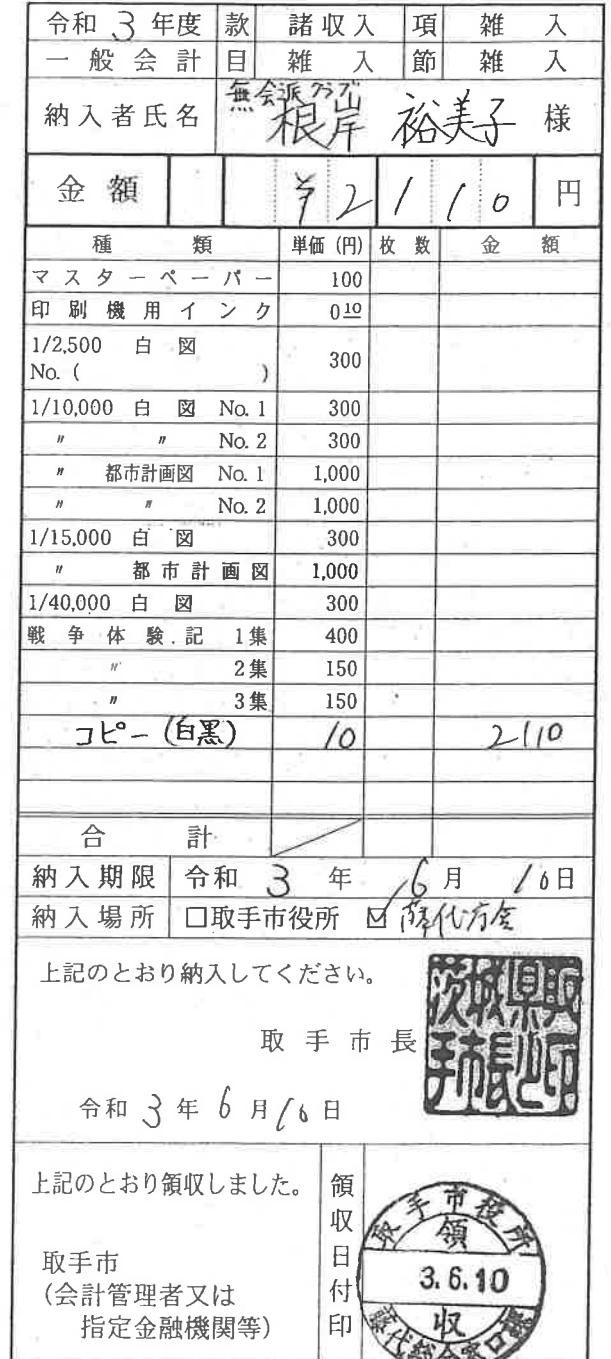 令和 3 年度 款 諸収入 項 雑入
一般会計 目 雑入 節 雑入
無会派クラブ
納入者氏名 根岸 裕美子 様
金額 ¥2110 円
種類 単価(円) 枚数 金額
マスターペーパー 100
印刷機用インク 0 10
1/2,500 白図
No. ( ) 300
1/10,000 白図 No. 1 300
〃 〃 No. 2 300
〃 都市計画図 No. 1 1,000
〃 〃 No. 2 1,000
1/15,000 白図 300
〃 都市計画図 1,000
1/40,000 白図 300
戦争体験記 1集 400
〃 2集 150
〃 3集 150
コピー(白黒) 10 2110
合計
納入期限 令和 3 年 6 月 10 日
納入場所 □取手市役所 ☑ 藤代庁舎
上記のとおり納入してください。
取手市長
茨城県取手市長之印
令和 3 年 6 月 10 日
上記のとおり領収しました。
取手市
(会計管理者又は
指定金融機関等)
領収日付印
取手市役所
領
3.6.10
収
藤代総合窓口課